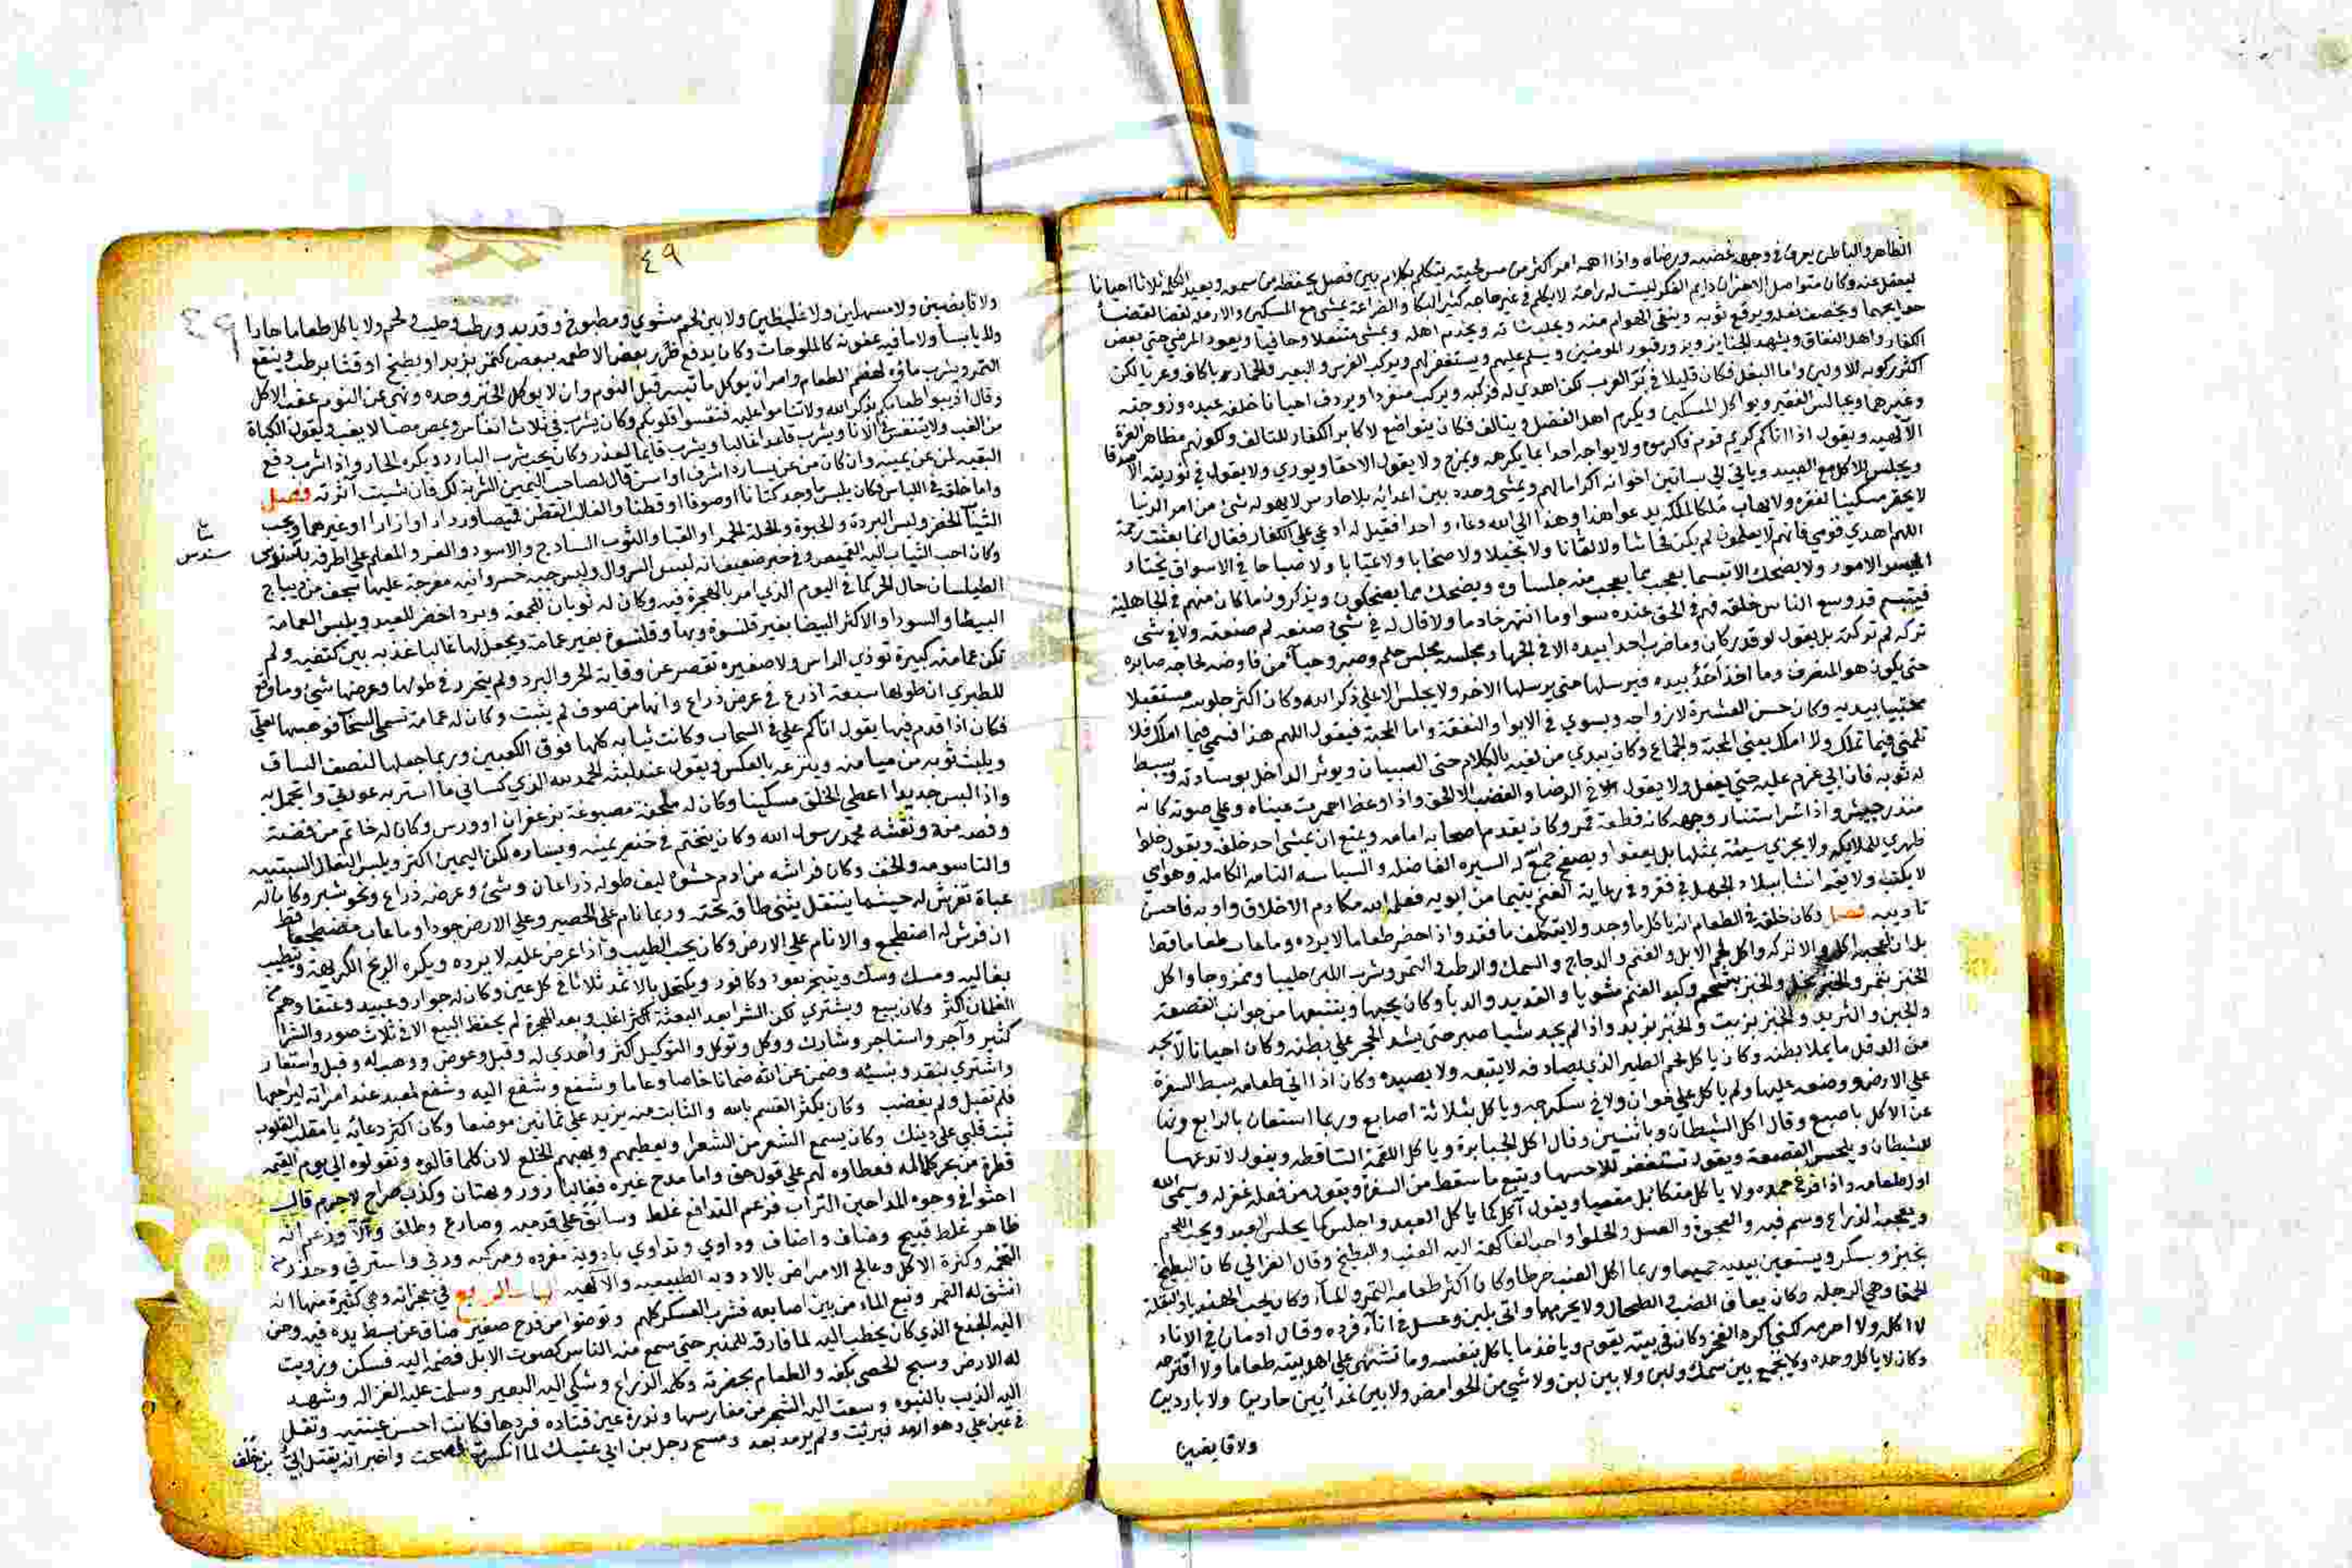 الظاهر والباطن يعرف في وجهه غضبه ورضاه واذا اهمه امر اكثر من مس لحيته يتكلم بكلام بين فصل يحفظه من سمعه ويعيد الكلمة ثلاثا احيانا
ليعقل عنه وكان متواصل الاحزان دايم الفكر ليست له راحة لا يتكلم في غير حاجة كثير البكا والضراعة يمشي مع المسكين والارملة لقضا
ويخصف نعله ويرقع ثوبه وينقي الهوام منه ويحلب شاته ويخدم اهله ويمشي منتعلا وحافيا ويعود المرضى حتى بعض
الكفار واهل النفاق ويشهد الجنايز ويزور قبور المومنين ويسلم عليهم ويستغفر لهم ويركب الفرس والبعير والحمار باكاف وعريا لكن
اكثر ركوبه للاولين واما البغل فكان قليلا في بر العرب لكن اهدي له فركبه ويركب منفردا ويردف احيانا خلفه عبده وزوجته
وغيرهما ويجالس الفقير ويواكل المسكين ويكرم اهل الفضل ويتالف فكان يتواضع لاكابر الكفار للتالف ولكونهم مظاهر العزة
الالهيه ويقول اذا اتاكم كريم قوم فاكرموه ولا يواجه احدا بما يكرهه ويمزح ولا يقول الا حقا ويوري ولا يقول في توريته الا صدقا
ويجلس للاكل مع العبيد وياتي الى بساتين اخوانه اكراما لهم ويمشي وحده بين اعدائه بلا حارس لا يهوله شئ من امر الدنيا
لا يحقر مسكينا لفقره ولا يهاب ملكا لملكه يدعو هذا وهذا الى الله دعاء واحدا فقيل له ادعي على الكفار فقال انما بعثت رحمة
اللهم اهدي قومي فانهم لا يعلمون لم يكن فحاشا ولا لعانا ولا بخيلا ولا صخابا ولا عيابا ولا صياحا في الاسواق يختار
ايسر الامور ولا يضحك الا تبسما يعجب مما يعجب منه جلساوه ويضحك مما يضحكون ويذكرون ما كان منهم في الجاهلية
فيتبسم قد وسع الناس خلقه فهم في الحق عنده سوا وما انتهر خادما ولا قال له في شئ صنعه لم صنعته ولا في شئ
تركه لم تركته بل يقول لو قدر كان وما ضرب احدا بيده الا في الجهاد ومجلسه مجلس حلم وصبر وحيآ من فاوضه لحاجه صابره
حتى يكون هو المنصرف وما اخذ احد بيده فيرسلها حتى يرسلها الاخر ولا يجلس الا على ذكر الله وكان اكثر جلوسه مستقبلا
محتبيا بيديه وكان حسن العشرة لازواجه ويسوي في الايوا والنفقة واما المحبة فيقول اللهم هذا قسمي فيما املك فلا
تلمني فيما تملك ولا املك يعني المحبة والجماع وكان يبدي من لقيه بالكلام حتى الصبيان ويوثر الداخل بوسادته ويبسط
له ثوبه فان ابى عزم عليه حتى يفعل ولا يقول في الرضا والغضب الا الحق واذا وعظ احمرت عيناه وعلى صوته كانه
منذر جيش واذا سر استنار وجهه كانه قطعة قمر وكان يقدم اصحابه امامه ويمنع ان يمشي احد خلفه ويقول خلوا
ظهري للملايكه ولا يجزي سيئة بمثلها بل يعفوا ويصفح جمع له السيره الفاضله والسياسه التامه الكامله وهو امي
لا يكتب ولا يقرا نشا ببلاد الجهل في فقر وفي رعاية الغنم يتيما من ابويه فعلمه الله مكارم الاخلاق وادبه فاحسن
تاديبه فصل وكان خلقه في الطعام انه ياكل ما وجد ولا يتكلف ما فقد واذا حضر طعاما لا يرده وما عاب طعاما قط
بل ان اعجبه اكله والا تركه واكل لحم الابل والغنم والدجاج والسمك والرطب والتمر وشرب اللبن حليبا وممزوجا واكل
الخبز بتمر والخبز بخل والخبز بشحم وكبد الغنم مشويا والقديد والدبا وكان يحبها ويتتبعها من جوانب القصعة
والجبن والثريد والخبز بزيت والخبز بزبد واذا لم يجد شيا صبر حتى يشد الحجر على بطنه وكان احيانا لا يجد
من الدقل ما يملا بطنه وكان ياكل لحم الطير الذي يصاد فه لا يتبعه ولا يصيده وكان اذا اتي طعامه بسط السفرة
على الارض ووضعه عليها ولم ياكل على خوان ولا في سكرجه وياكل بثلاثة اصابع وربما استعان بالرابع ونها
عن الاكل باصبع وقال اكل الشيطان وباثنين وقال اكل الجبابرة وياكل اللقمة الساقطه ويقول لا تدعها
للشيطان ويلحس القصعة ويقول تستغفر للاحسها ويتبع ما سقط من السفرة ويقول من فعل غفر له ويسمي الله
اول طعامه واذا فرغ حمده ولا ياكل متكا بل مقعيا ويقول آكل كما ياكل العبد واجلس كما يجلس العبد ويحب اللحم
ويعجبه الذراع وسم فيه والعجوة والعسل والحلوا واحب الفاكهة اليه العنب والبطيخ وقال الغزالي كان البطيخ
بخبز وسكر ويستعين بيديه جميعا وربما اكل العنب خرطا وكان اكثر طعامه التمر والمآ وكان يحب الهندبا والبقلة
الحمقا وهي الرجله وكان يعاف الضب والطحال ولا يحرمها واتي بلبن وعسل في اناء فرده وقال ادمان في الاناء
لا اكله ولا احرمه لكني اكره الفخر وكان في بيته يقوم وياخذ ما ياكل بنفسه وما تشهى على اهل بيته طعاما ولا اقترحه
وكان لا ياكل وحده ولا يجمع بين سمك ولبن ولا بين لبن ولا شي من الحوامض ولا بين غدائين حارين ولا باردين
ولا قابضين
٤٩
ولا قابضين ولا مسهلين ولا غليظين ولا بين لحم مشوي ومطبوخ وقديد ورطب وحليب ولحم ولا ياكل طعاما حارا
ولا يابسا ولا ما فيه عفونة كالملوحات وكان يدفع ضرر بعض الاطعمه ببعض كتمر بزبد او بطيخ او قثا برطب وينقع
التمر ويشرب ماؤه لهضم الطعام وامر ان يوكل ما تيسر قبل النوم وان لا يوكل الخبز وحده ونهى عن النوم عقب الاكل
وقال اذيبوا طعامكم بذكر الله ولا تناموا عليه فتقسوا قلوبكم وكان يشرب في ثلاث انفاس ويمص مصا لا يعب ويقول الكباد
من العب ولا يتنفس في الانا ويشرب قاعدا غالبا ويشرب قايما لعذر وكان يحب شرب البارد ويكره الحار واذا شرب دفع
البقيه لمن عن يمينه وان كان من عن يساره اشرف او اسن قال لصاحب اليمين الشربة لك فان شيت آثرته فصل
واما خلقه في اللباس فكان يلبس ما وجد كتانا او صوفا او قطنا والغالب القطن قميصا وردا او ازارا او غيرهما ويحب
الثياب الخضر ولبس البردة والحبرة والحلة الحمرا والقبا والثوب الساذج والاسود والفرو المعلم على اطرفه بسندس
سندس
وكان احب الثياب اليه القميص وفي خبر ضعيف انه لبس السروال ولبس جبه خسروانيه مفرجة عليها سجف من ديباج
الطيلسان حال الحر كما في اليوم الذي امر بالهجرة فيه وكان له ثوبان للجمعة وبرد اخضر للعيد ويلبس العمامة
البيضا والسودا والاكثر البيضا بغير قلنسوة وبها وقلنسوة بغير عمامة ويجعل لها غالبا عذبه بين كتفيه ولم
تكن عمامته كبيرة توذي الراس ولا صغيره تقصر عن وقاية الحر والبرد ولم يتحرر في طولها وعرضها شئ وما وقع
للطبري ان طولها سبعة اذرع في عرض ذراع وانها من صوف لم يثبت وكان له عمامة تسمى السحاب فوهبها لعلي
فكان اذا قدم فيها يقول اتاكم علي في السحاب وكانت ثيابه كلها فوق الكعبين وربما جعلها لنصف الساق
ويلبس ثوبه من ميامنه وينزعه بالعكس ويقول عند لبسه الحمد لله الذي كساني ما استر به عورتي واتجمل به
واذا لبس جديدا اعطي الخلق مسكينا وكان له ملحفة مصبوغة بزعفران او ورس وكان له خاتم من فضة
وفصه منه ونقشه محمد رسول الله وكان يتختم في خنصر يمينه ويساره لكن اليمين اكثر ويلبس النعال السبتيه
والتاسومه والخف وكان فراشه من ادم حشوه ليف طوله ذراعان وشئ وعرضه ذراع ونحو شبر وكا باله
عباة تفرش له حيثما ينتقل يثني طاقه تحته وربما نام على الحصير وعلى الارض جودا وما عاب مضطجعا قط
ان فرش له اضطجع والا نام على الارض وكان يحب الطيب واذا عرض عليه لا يرده ويكره الريح الكريهة ويتطيب
بغاليه ومسك وسك ويتبخر بعود وكافور ويكتحل بالاثمد ثلاثا في كل عين وكان له جوار وعبيد وعتقا وهم
الغلمان اكثر وكان يبيع ويشتري لكن الشرا بعد البعثة اكثر اغلب وبعد الهجرة لم يحفظ البيع الا في ثلاث صور والشرا
كثير وآجر واستاجر وشارك ووكل وتوكل والتوكيل اكثر واهدي له وقبل وعوض ووهب له وقبل واستعار
واشتري بنقد ونسيئه وضمن عن الله ضمانا خاصا وعاما وشفع وشفع اليه وشفع لمعبد عند امراته ليراجعها
فلم تقبل ولم يغضب وكان يكثر القسم بالله والثابت منه يزيد على ثمانين موضعا وكان اكثر دعائه يا مقلب القلوب
ثبت قلبي على دينك وكان يسمع الشعر من الشعرا ويعطيهم ويهبهم الخلع لان كلما قالوه وتقولوه الى يوم القيمة
قطرة من بحر كماله فعطاوه لهم على قول حق واما مدح غيره فغالبا زور وبهتان وكذب صراح لا جرم قال
احثوا في وجوه المداحين التراب فزعم التدافع غلط وسابق على قدميه وصارع وطلق وآلا وزعم انه
ظاهر غلط قبيح وضاف واضاف وداوي وتداوي بادوية مفرده ومركبه ورقى واسترقي وحذر من
التخمه وكثرة الاكل وعالج الامراض بالادويه الطبيعيه والالهيه الباب الرابع في معجزاته وهي كثيرة منها انه
انشق له القمر ونبع الماء من بين اصابعه فشرب العسكر كلهم وتوضوا من قدح صغير ضاق عن بسط يده فيه وحن
اليه الجذع الذي كان يخطب اليه لما فارقه للمنبر حتى سمع منه الناس كصوت الابل فضمه اليه فسكن وزويت
له الارض وسبح الحصى بكفه والطعام بحضرته وكلمه الذراع وشكي اليه البعير وسلمت عليه الغزاله وشهد
اليه الذيب بالنبوه وسعت اليه الشجر من مغارسها وندرة عين قتاده فردها فكانت احسن عينيه وتفل
في عين علي وهو ارمد فبرئت ولم يرمد بعد ومسح رجل بن ابي عتيك لما انكسرت فصحت واخبر انه يقتل ابي بن خلف